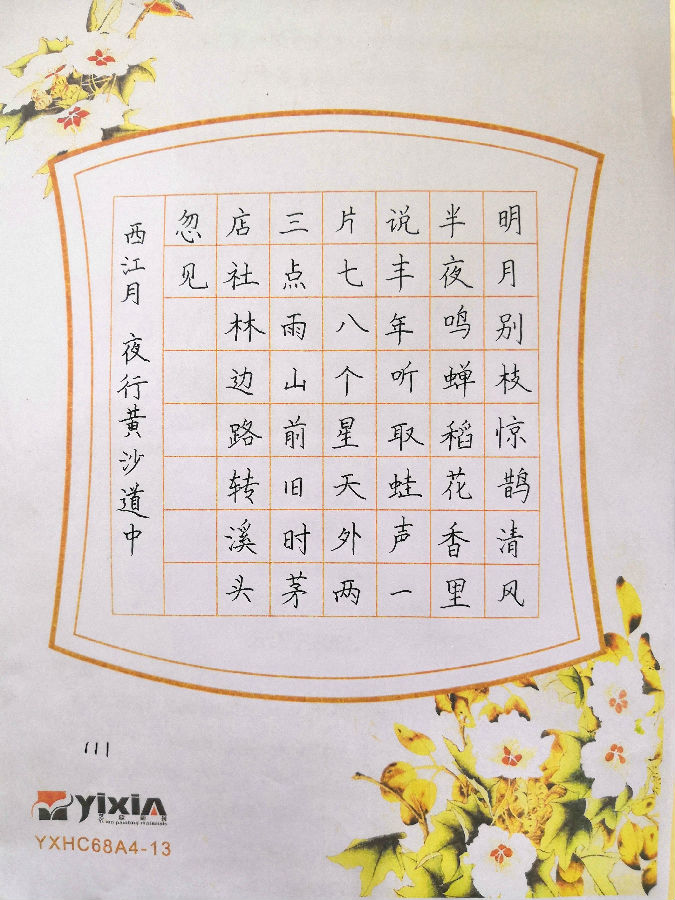 明月别枝惊鹊清风
半夜鸣蝉稻花香里
说丰年听取蛙声一
片七八个星天外两
三点雨山前旧时茅
店社林边路转溪头
忽见
西江月 夜行黄沙道中
111
yixin
YXHC68A4-13